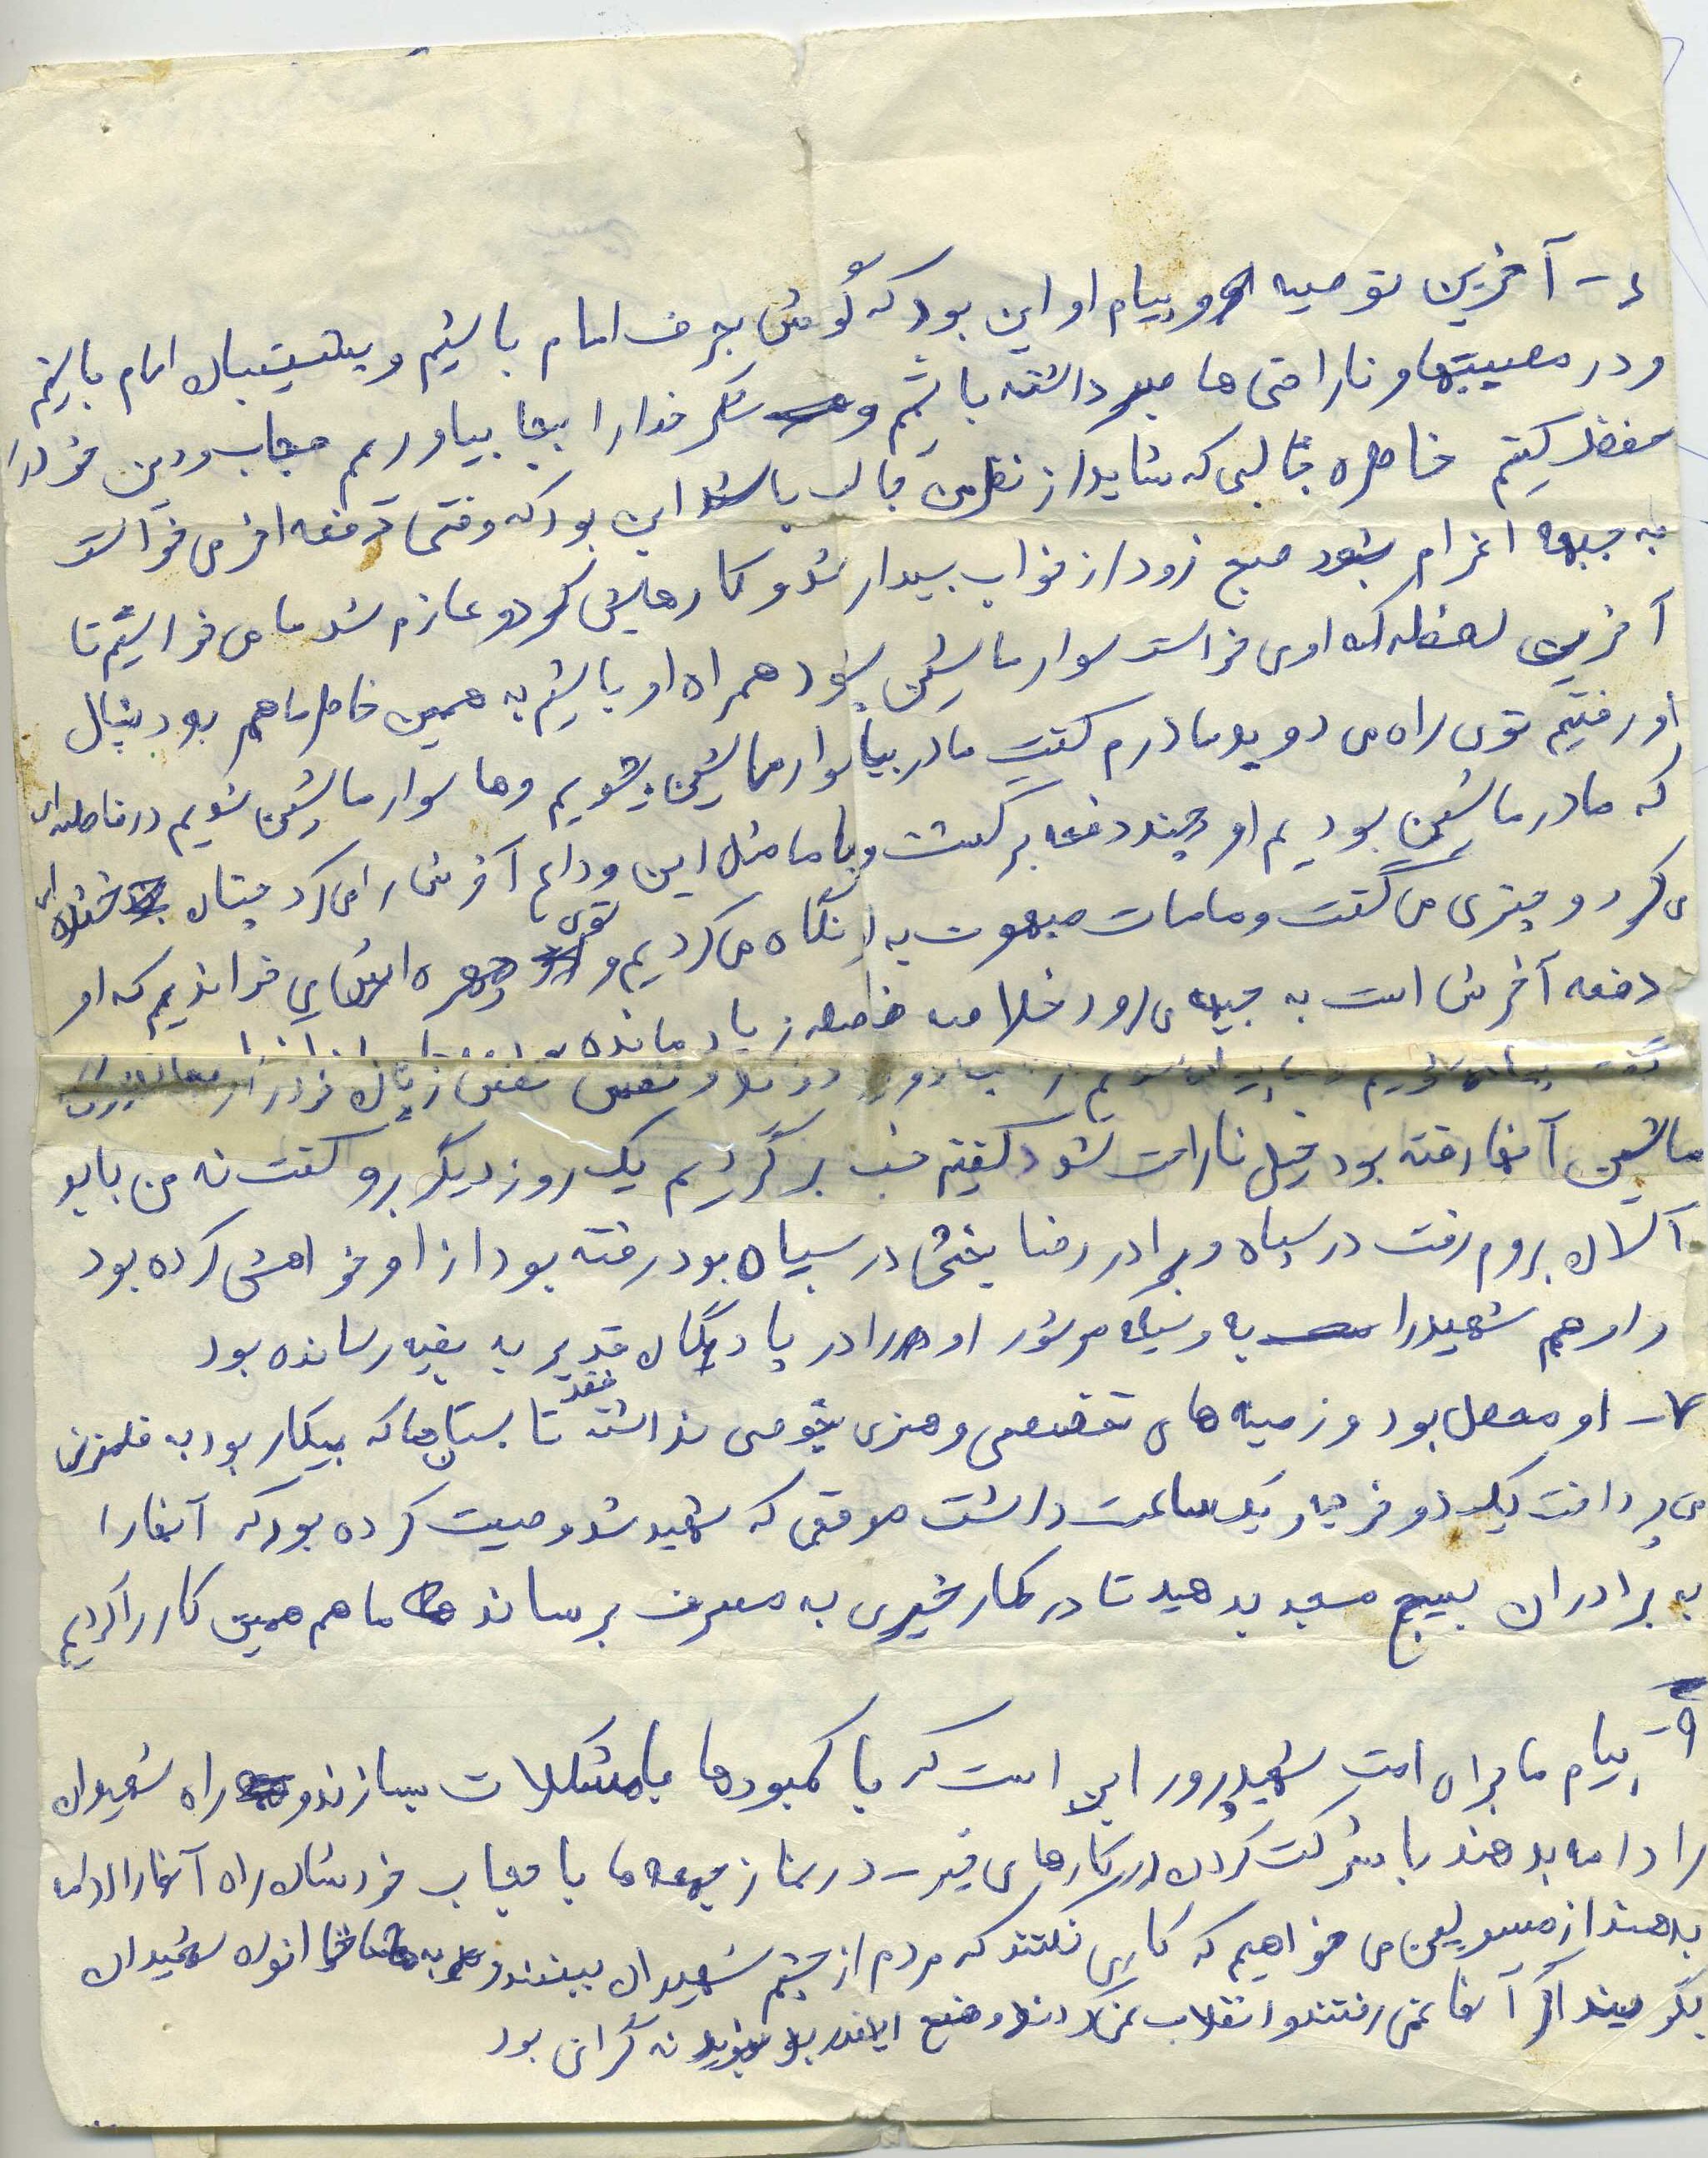 آخرین توصیه و پیام او این بود که گوش بحرف امام باشیم و پشتیبان امام باشیم
و در مصیبتها و ناراحتی ها صبر داشته باشیم و شکر خدا را بجا بیاوریم حجاب و دین خود را
حفظ کنیم خاطره جالبی که شاید از نظر من جالب باشد این بود که وقتی دفعه اخر می خواست
به جبهه اعزام بشود صبح زود از خواب بیدار شد و کارهایش کرد و عازم شد ما می خواستیم تا
آخرین لحظه که او می خواست سوار ماشین بشود همراه او باشیم به همین خاطر ما هم بدنبال
او رفتیم توی راه می دوید مادرم گفت مادر بیا سوار ماشین بشویم و ما سوار ماشین شویم در فاصله ای
که ما در ماشین بودیم او چند دفعه برگشت و با ما مثل این وداع آخرش را می کرد چنان خنده ای
می کرد و چیزی می گفت و ما مات مبهوت به او نگاه می کردیم و توی چهره اش می خواندیم که او
دفعه آخرش است به جبهه می رود خلاصه فاصله زیاد مانده
ماشین آنها رفته بود خیلی ناراحت شد گفتیم خب برگردیم یک روز دیگر برو گفت نه من باید
الان بروم رفت در سپاه و برادر رضا بخشی در سپاه بود رفته بود از او خواهش کرده بود
و او هم شهید را به وسیله موتور او را در پادگان قدیر به بقیه رسانده بود
۷- او محصل بود و زمینه های تخصصی و هنری بخصوصی نداشته فقط تابستانها که بیکار بود به قلمزنی
می پرداخت یک دوخرجه و یک ساعت داشت موقعی که شهید شد وصیت کرده بود که آنها را
به برادران بسیج مسجد بدهید تا در کار خیری به مصرف برسانند ما هم همین کار را کردیم
۹- پیام ما براه امت شهیدپرور این است که با کمبودها با مشکلات بسازند و راه شهیدان
را ادامه بدهند با شرکت کردن در کارهای خیر - در نماز جمعه ها با حجاب خودشان راه آنها را ادامه
بدهند از مسولین می خواهیم که کاری نکنند که مردم از چشم شهیدان ببینند و به خانواده شهیدان
بگویند اگر آنها نمی رفتند و انقلاب نمی کردند وضع اینقدر بد نبود نه گرانی بود